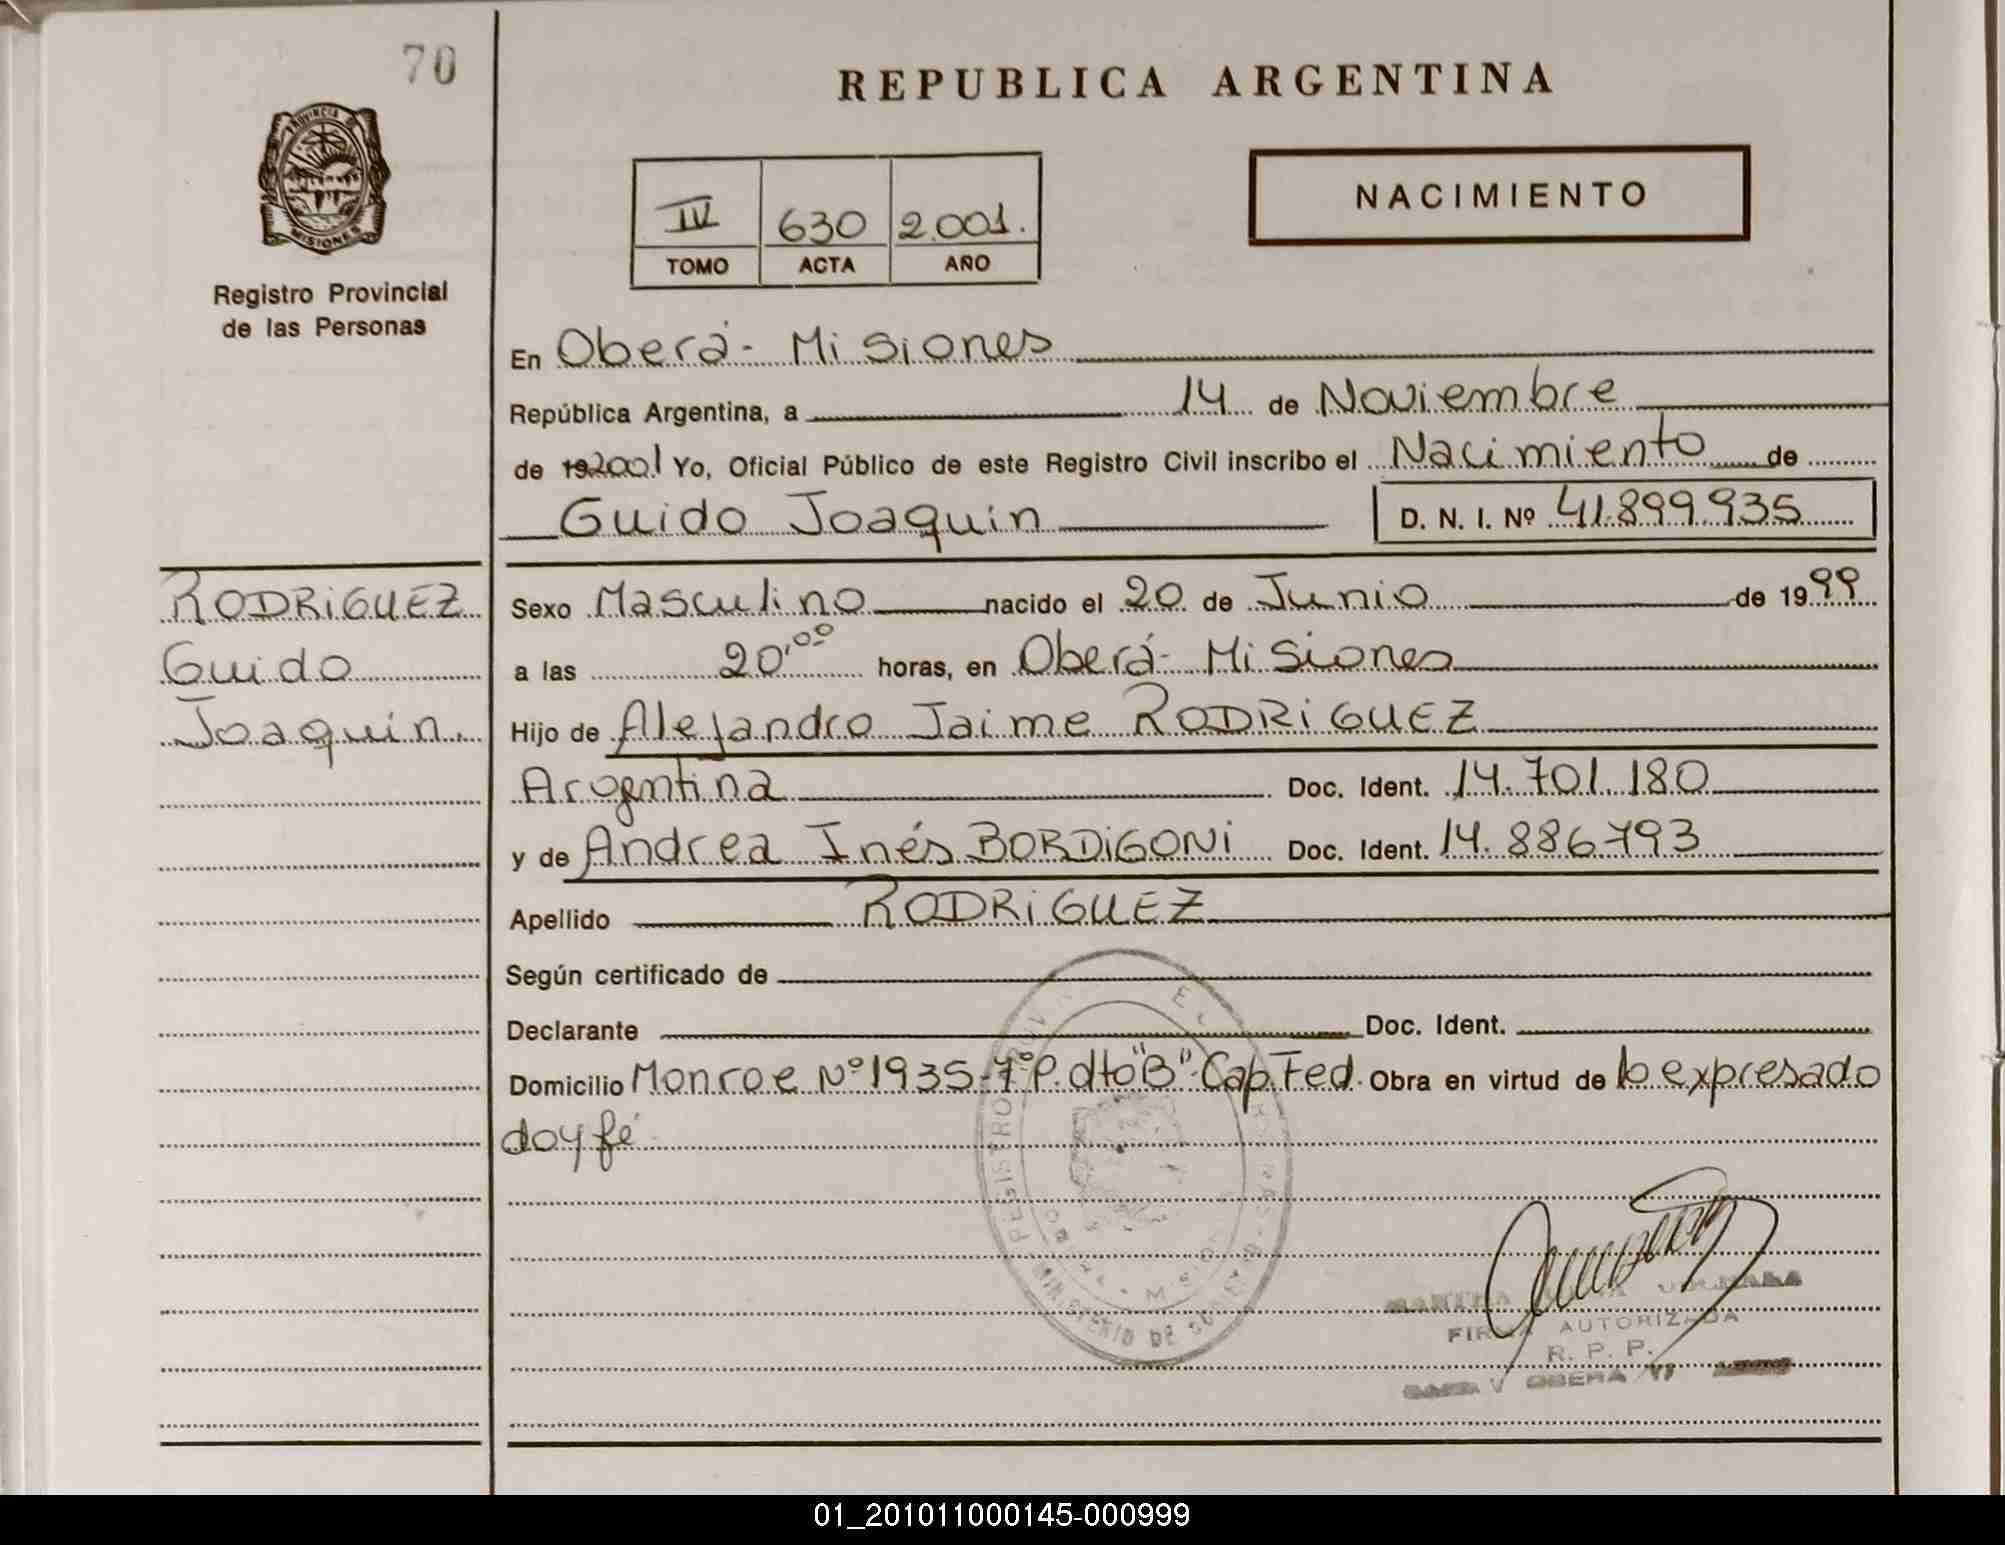 70
REPUBLICA ARGENTINA
PROVINCIA DE
MISIONES
Registro Provincial
de las Personas
IV 630 2.001.
TOMO ACTA AÑO
NACIMIENTO
En Oberá - Misiones
República Argentina, a 14 de Noviembre
de 19 2001 Yo, Oficial Público de este Registro Civil inscribo el Nacimiento de
Guido Joaquin D. N. I. Nº 41.899.935
RODRIGUEZ
Guido
Joaquin.
Sexo Masculino nacido el 20 de Junio de 1999
a las 20,00 horas, en Oberá - Misiones
Hijo de Alejandro Jaime RODRIGUEZ
Argentina Doc. Ident. 14.701.180
y de Andrea Inés BORDIGONI Doc. Ident. 14.886793
Apellido RODRIGUEZ
Según certificado de
Declarante Doc. Ident.
Domicilio Monroe Nº 1935-7º P. dto "B" - Cap. Fed. Obra en virtud de lo expresado
doy fé
REGISTRO
MINISTERIO DE
FIRMA AUTORIZADA
R. P. P.
OBERA
01_201011000145-000999